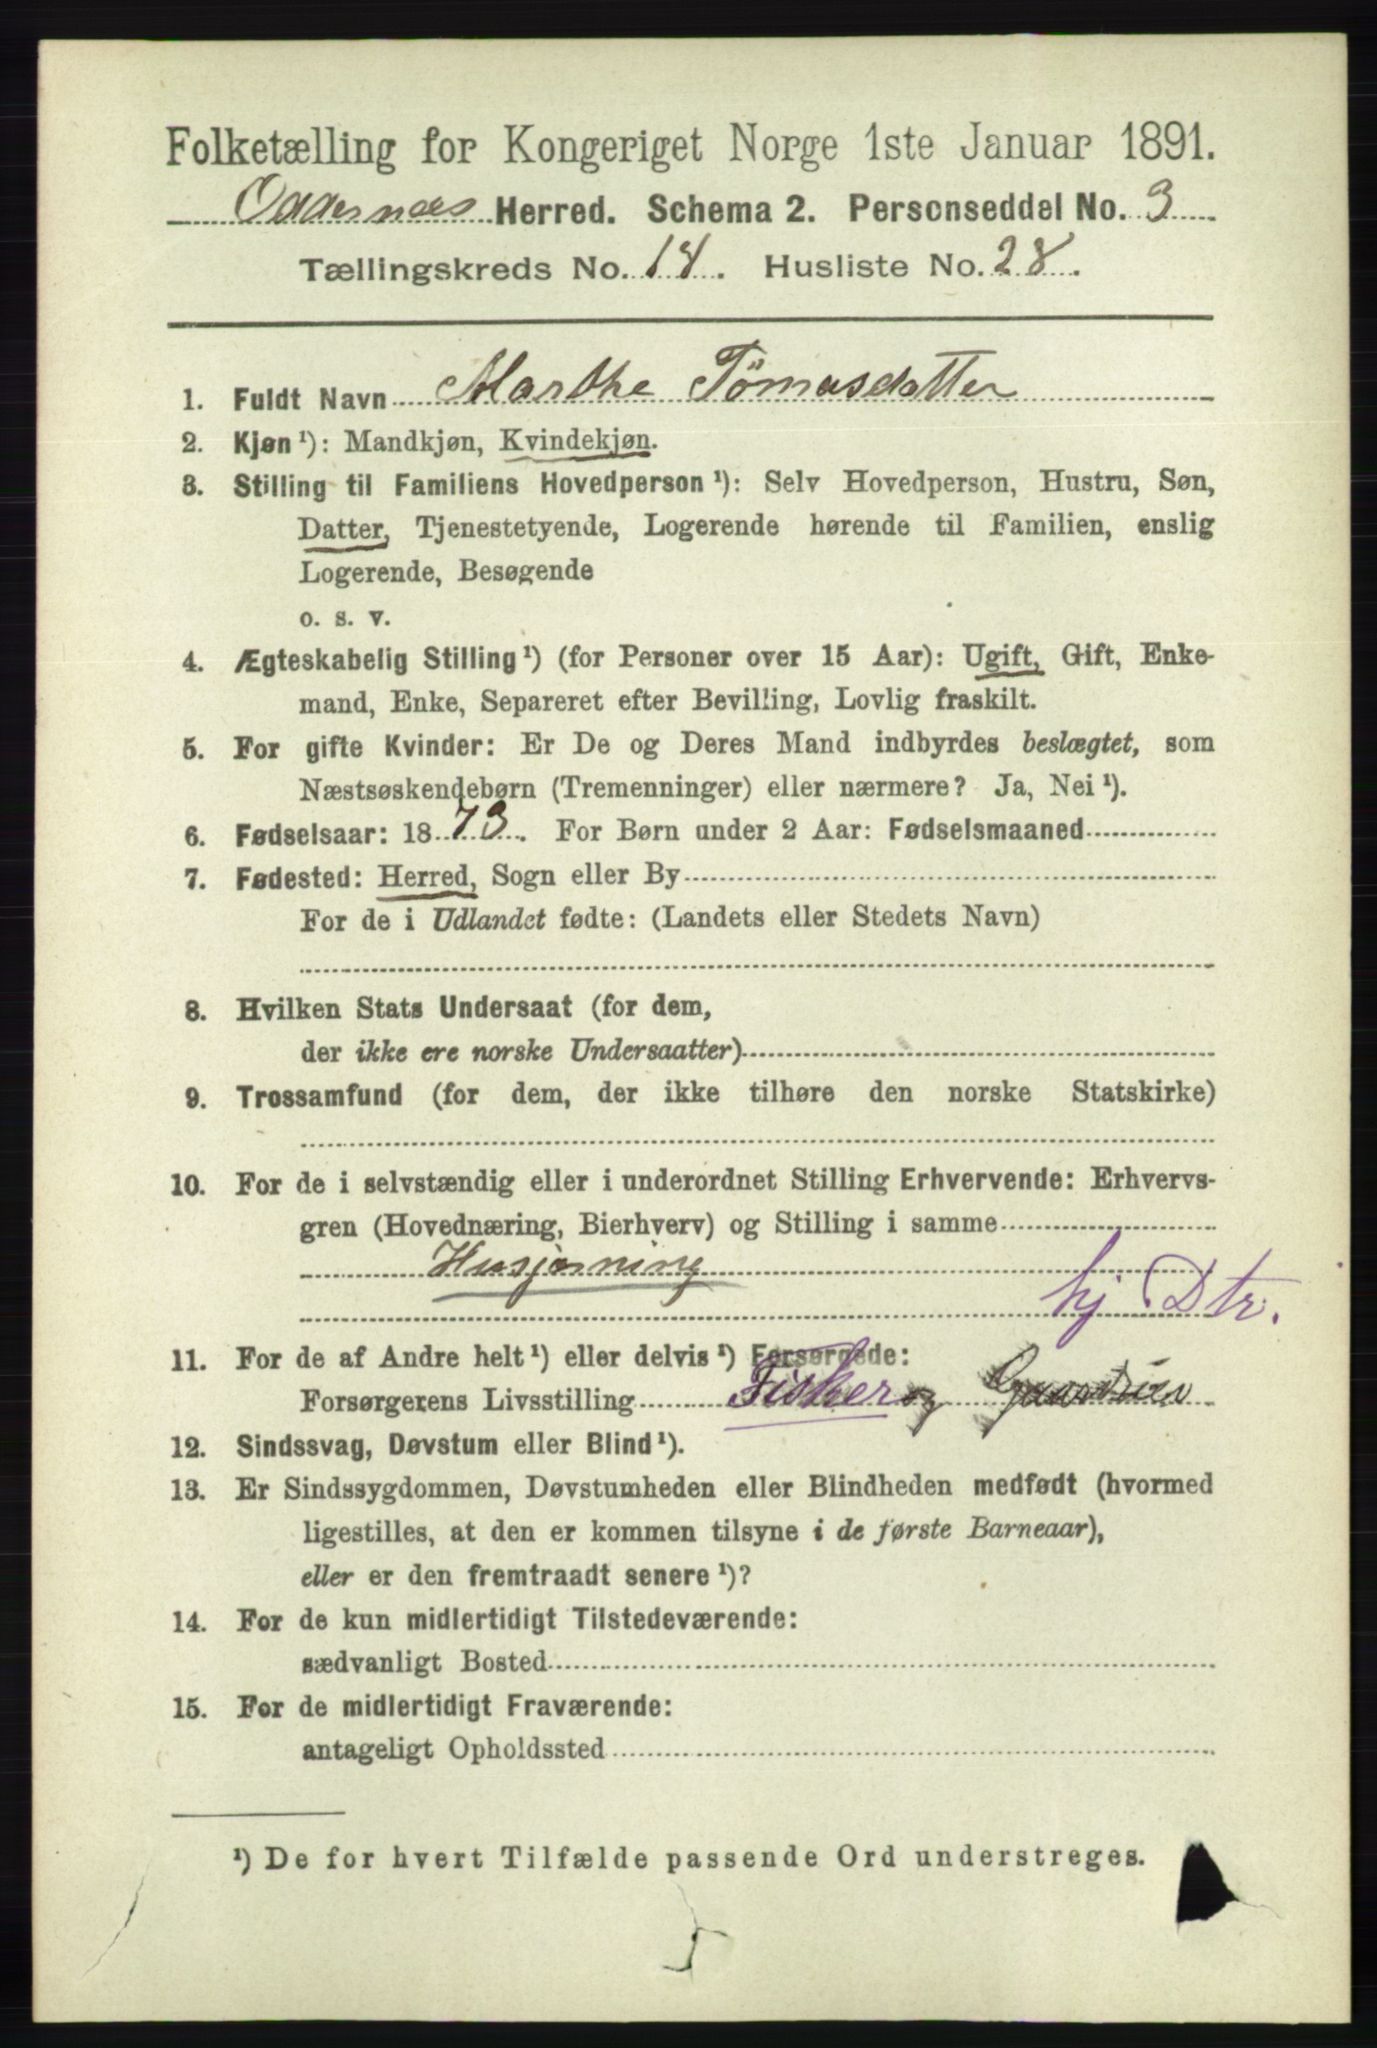 Folketælling for Kongeriget Norge 1ste Januar 1891.
Oddernes Herred. Schema 2. Personseddel No. 3
Tællingskreds No. 14. Husliste No. 28.
1. Fuldt Navn Marthe Tömasdatter
2. Kjøn ¹): Mandkjøn, Kvindekjøn.
3. Stilling til Familiens Hovedperson ¹): Selv Hovedperson, Hustru, Søn,
Datter, Tjenestetyende, Logerende hørende til Familien, enslig
Logerende, Besøgende
o. s. v.
4. Ægteskabelig Stilling ¹) (for Personer over 15 Aar): Ugift, Gift, Enke-
mand, Enke, Separeret efter Bevilling, Lovlig fraskilt.
5. For gifte Kvinder: Er De og Deres Mand indbyrdes beslægtet, som
Næstsøskendebørn (Tremenninger) eller nærmere? Ja, Nei ¹).
6. Fødselsaar: 1873. For Børn under 2 Aar: Fødselsmaaned
7. Fødested: Herred, Sogn eller By
For de i Udlandet fødte: (Landets eller Stedets Navn)
8. Hvilken Stats Undersaat (for dem,
der ikke ere norske Undersaatter)
9. Trossamfund (for dem, der ikke tilhøre den norske Statskirke)
10. For de i selvstændig eller i underordnet Stilling Erhvervende: Erhvervs-
gren (Hovednæring, Bierhverv) og Stilling i samme
Husjerning
hj Dtr.
11. For de af Andre helt ¹) eller delvis ¹) Forsørgede:
Forsørgerens Livsstilling Fisker og
12. Sindssvag, Døvstum eller Blind ¹).
13. Er Sindssygdommen, Døvstumheden eller Blindheden medfødt (hvormed
ligestilles, at den er kommen tilsyne i de første Barneaar),
eller er den fremtraadt senere ¹)?
14. For de kun midlertidigt Tilstedeværende:
sædvanligt Bosted
15. For de midlertidigt Fraværende:
antageligt Opholdssted
¹) De for hvert Tilfælde passende Ord understreges.